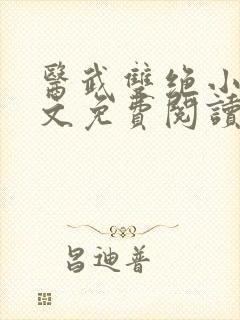 醫武雙绝小
文免費閱讀
昌迪普